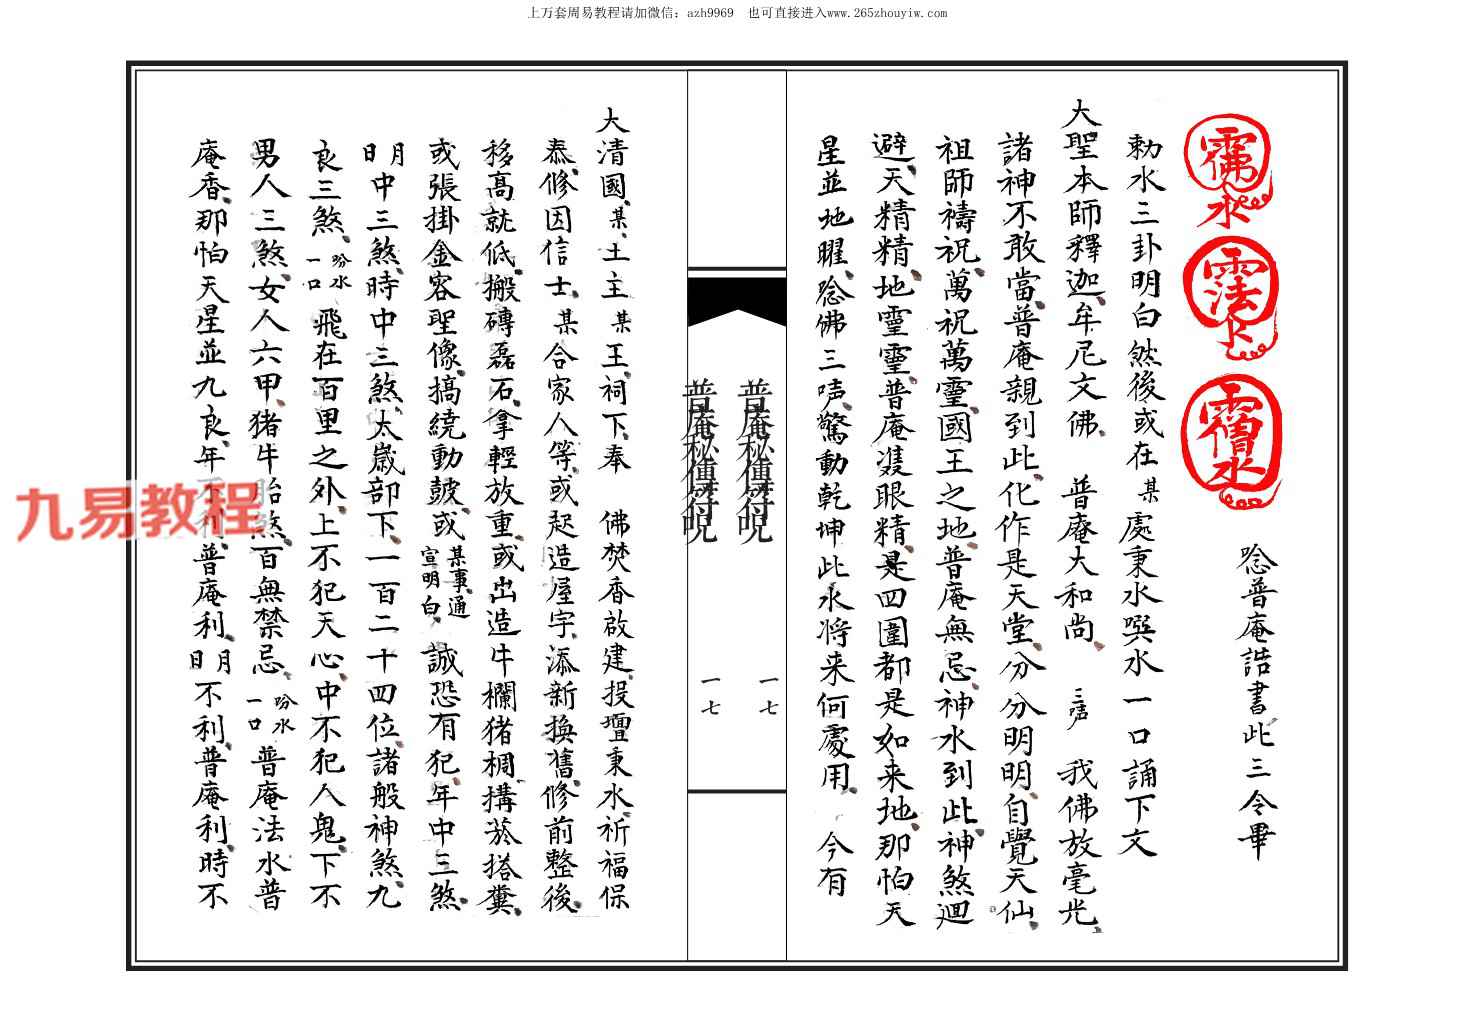 上万套周易教程请加微信：azh9969　也可直接进入www.265zhouyiw.com
佛水
法水
僧水
唸普庵誥書此三令畢
勅水三卦明白然後或在某處秉水噀水一口誦下文
大聖本師釋迦牟尼文佛　普庵大和尚　三声　我佛放毫光
諸神不敢當普庵親到此化作是天堂分分明明自覺天仙
祖師禱祝萬祝萬靈國王之地普庵無忌神水到此神煞迴
避天精精地靈靈普庵眼精是四圍都是如来地那怕天
星並地曜唸佛三声驚動乾坤此水将来何處用　今有
普庵秘傳符呪
一七
普庵秘傳符呪
一七
大清國某土主某王祠下奉　佛焚香啟建投壇秉水祈福保
泰修因信士某合家人等或起造屋宇添新換舊修前整後
移高就低搬磚磊石拿輕放重或出造牛欄猪椆搆菸搭糞
或張掛金容聖像搞繞動鼓或某事通宣明白誠恐有犯年中三煞
月日中三煞時中三煞太歲部下一百二十四位諸般神煞九
良三煞吩水一口飛在百里之外上不犯天心中不犯人鬼下不
男人三煞女人六甲猪牛胎煞百無禁忌吩水一口普庵法水普
庵香那怕天星並九良年不利普庵利月日不利普庵利時不
九易教程